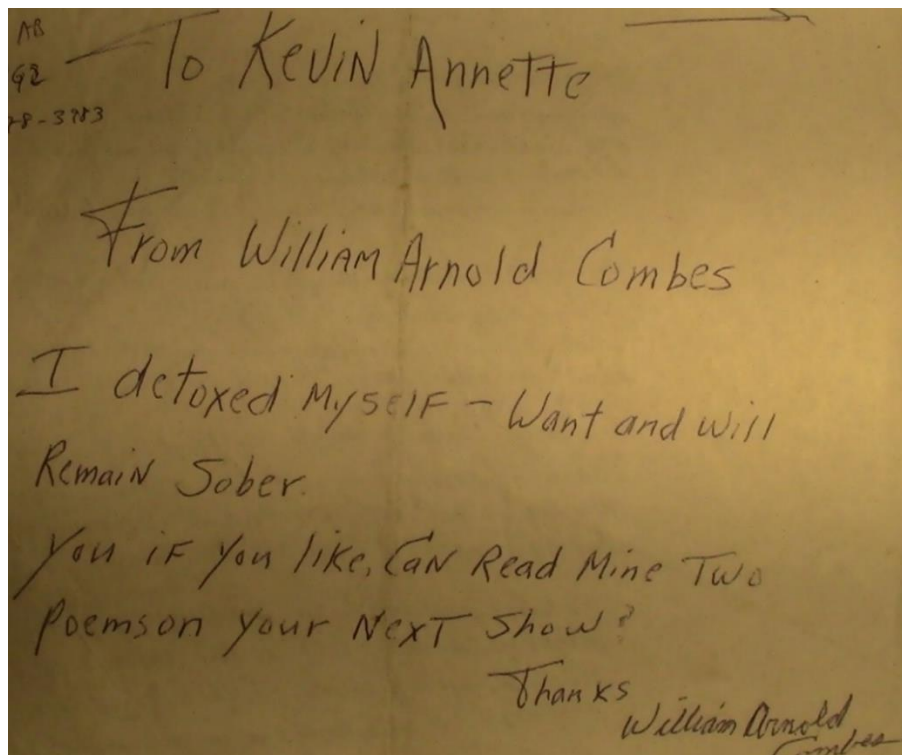 AB
To Kevin Annette
G2
78-3983
From William Arnold Combes
I detoxed Myself - Want and will
Remain Sober.
You if you like, Can Read Mine Two
Poemson your Next Show?
Thanks
William Arnold
Combes